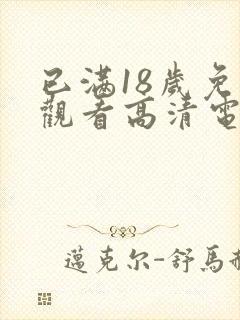 已滿18歲免
觀看高清電
邁克尔-舒馬赫